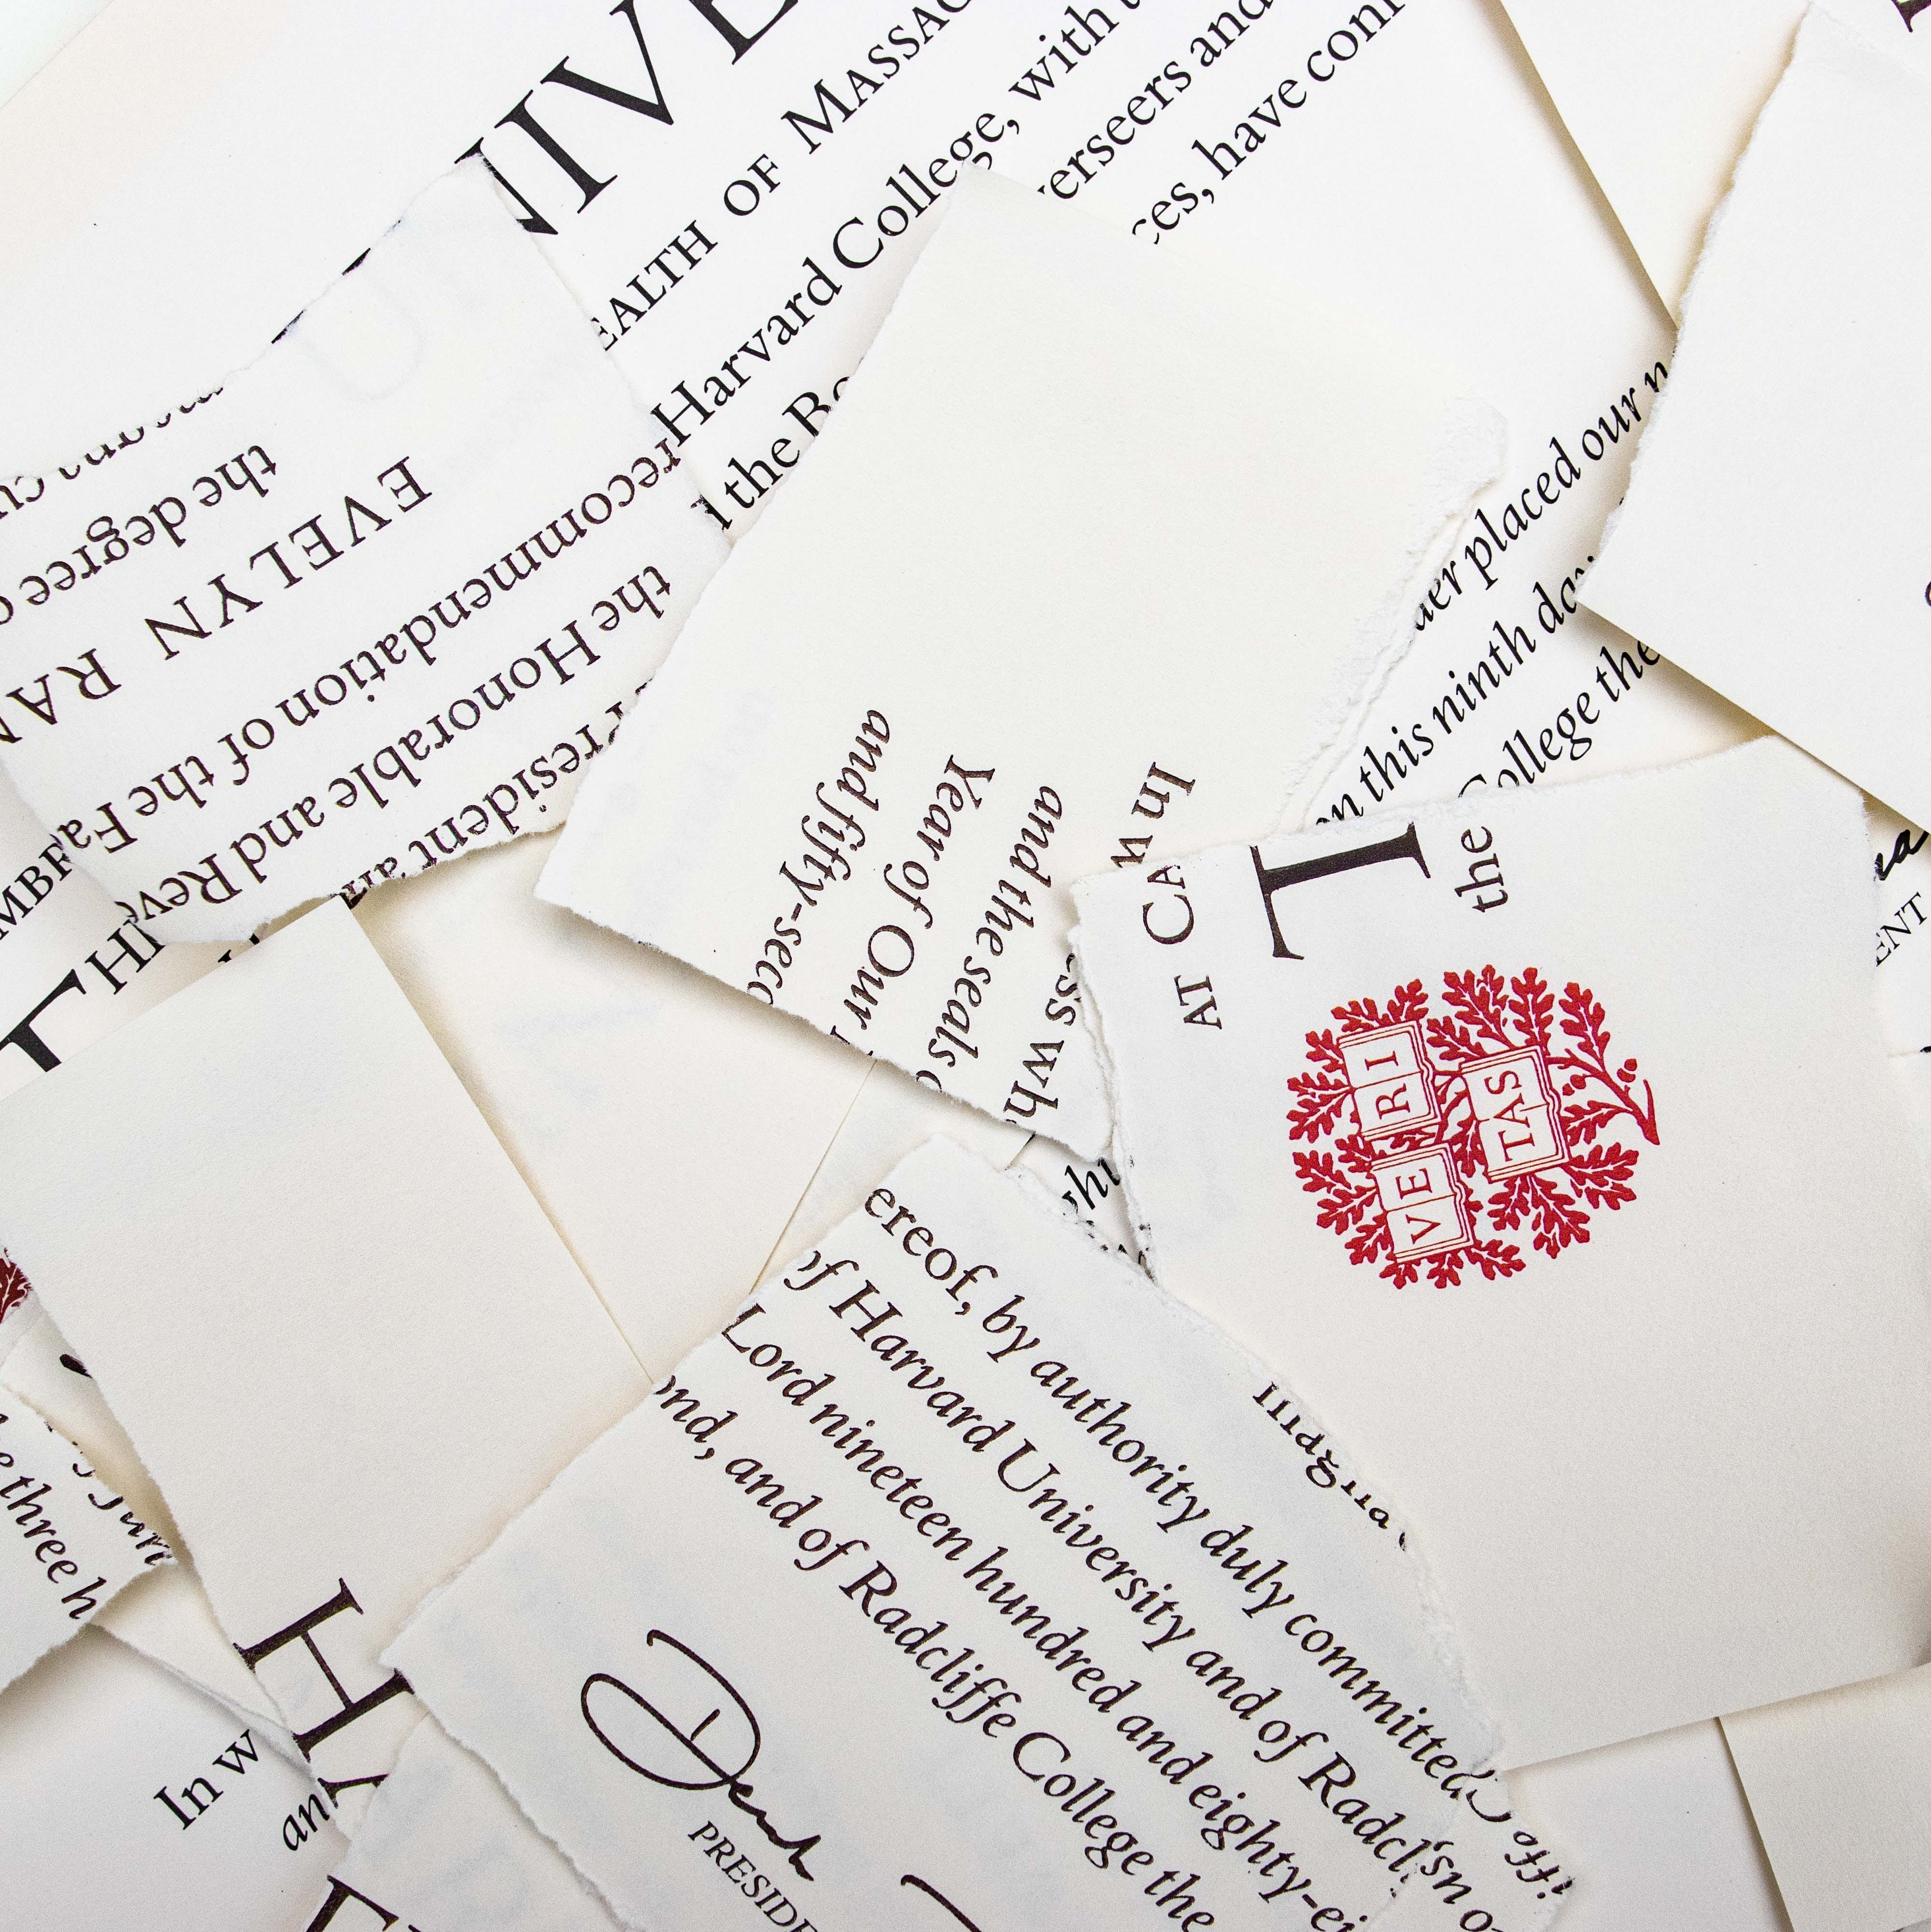 NIVE
EALTH OF MASSAC
Harvard College, with
the
erseers and
ces, have
placed our
on this ninth
College the
the degree
EVELYN RA
recommendation of the Fa
the Honorable and Reve
President an
In w
and the seals
Year of Our
and fifty-seco
ess wh
T
the
AT CA
VE RI
TAS
ENT
ereof, by authority duly committed
of Harvard University and of Radcl
Lord nineteen hundred and eighty-ei
ond, and of Radcliffe College the
PRESIDE
three h
HA
In w
an